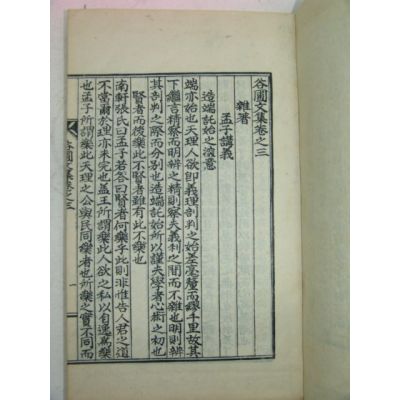 谷圃文集卷之三
雜著
孟子講義
造端託始之深意
端亦始也天理人欲即義理剖判之始差毫釐而繆千里故其
下繼言精察而明辨之精則察夫義利之間而不雜也明則辨
其剖判之際而分別也造端託始所以謹夫學者心術之初也
賢者而後樂此不賢者雖有此不樂也
南軒張氏曰孟子若答曰賢者何樂乎此則非惟告人君之道
不當爾於理亦未完也盖王所謂樂此人欲之私以自逸爲樂
也孟子所謂樂此天理之公與民同樂者也所樂之實不同而
谷圃文集卷之三
一